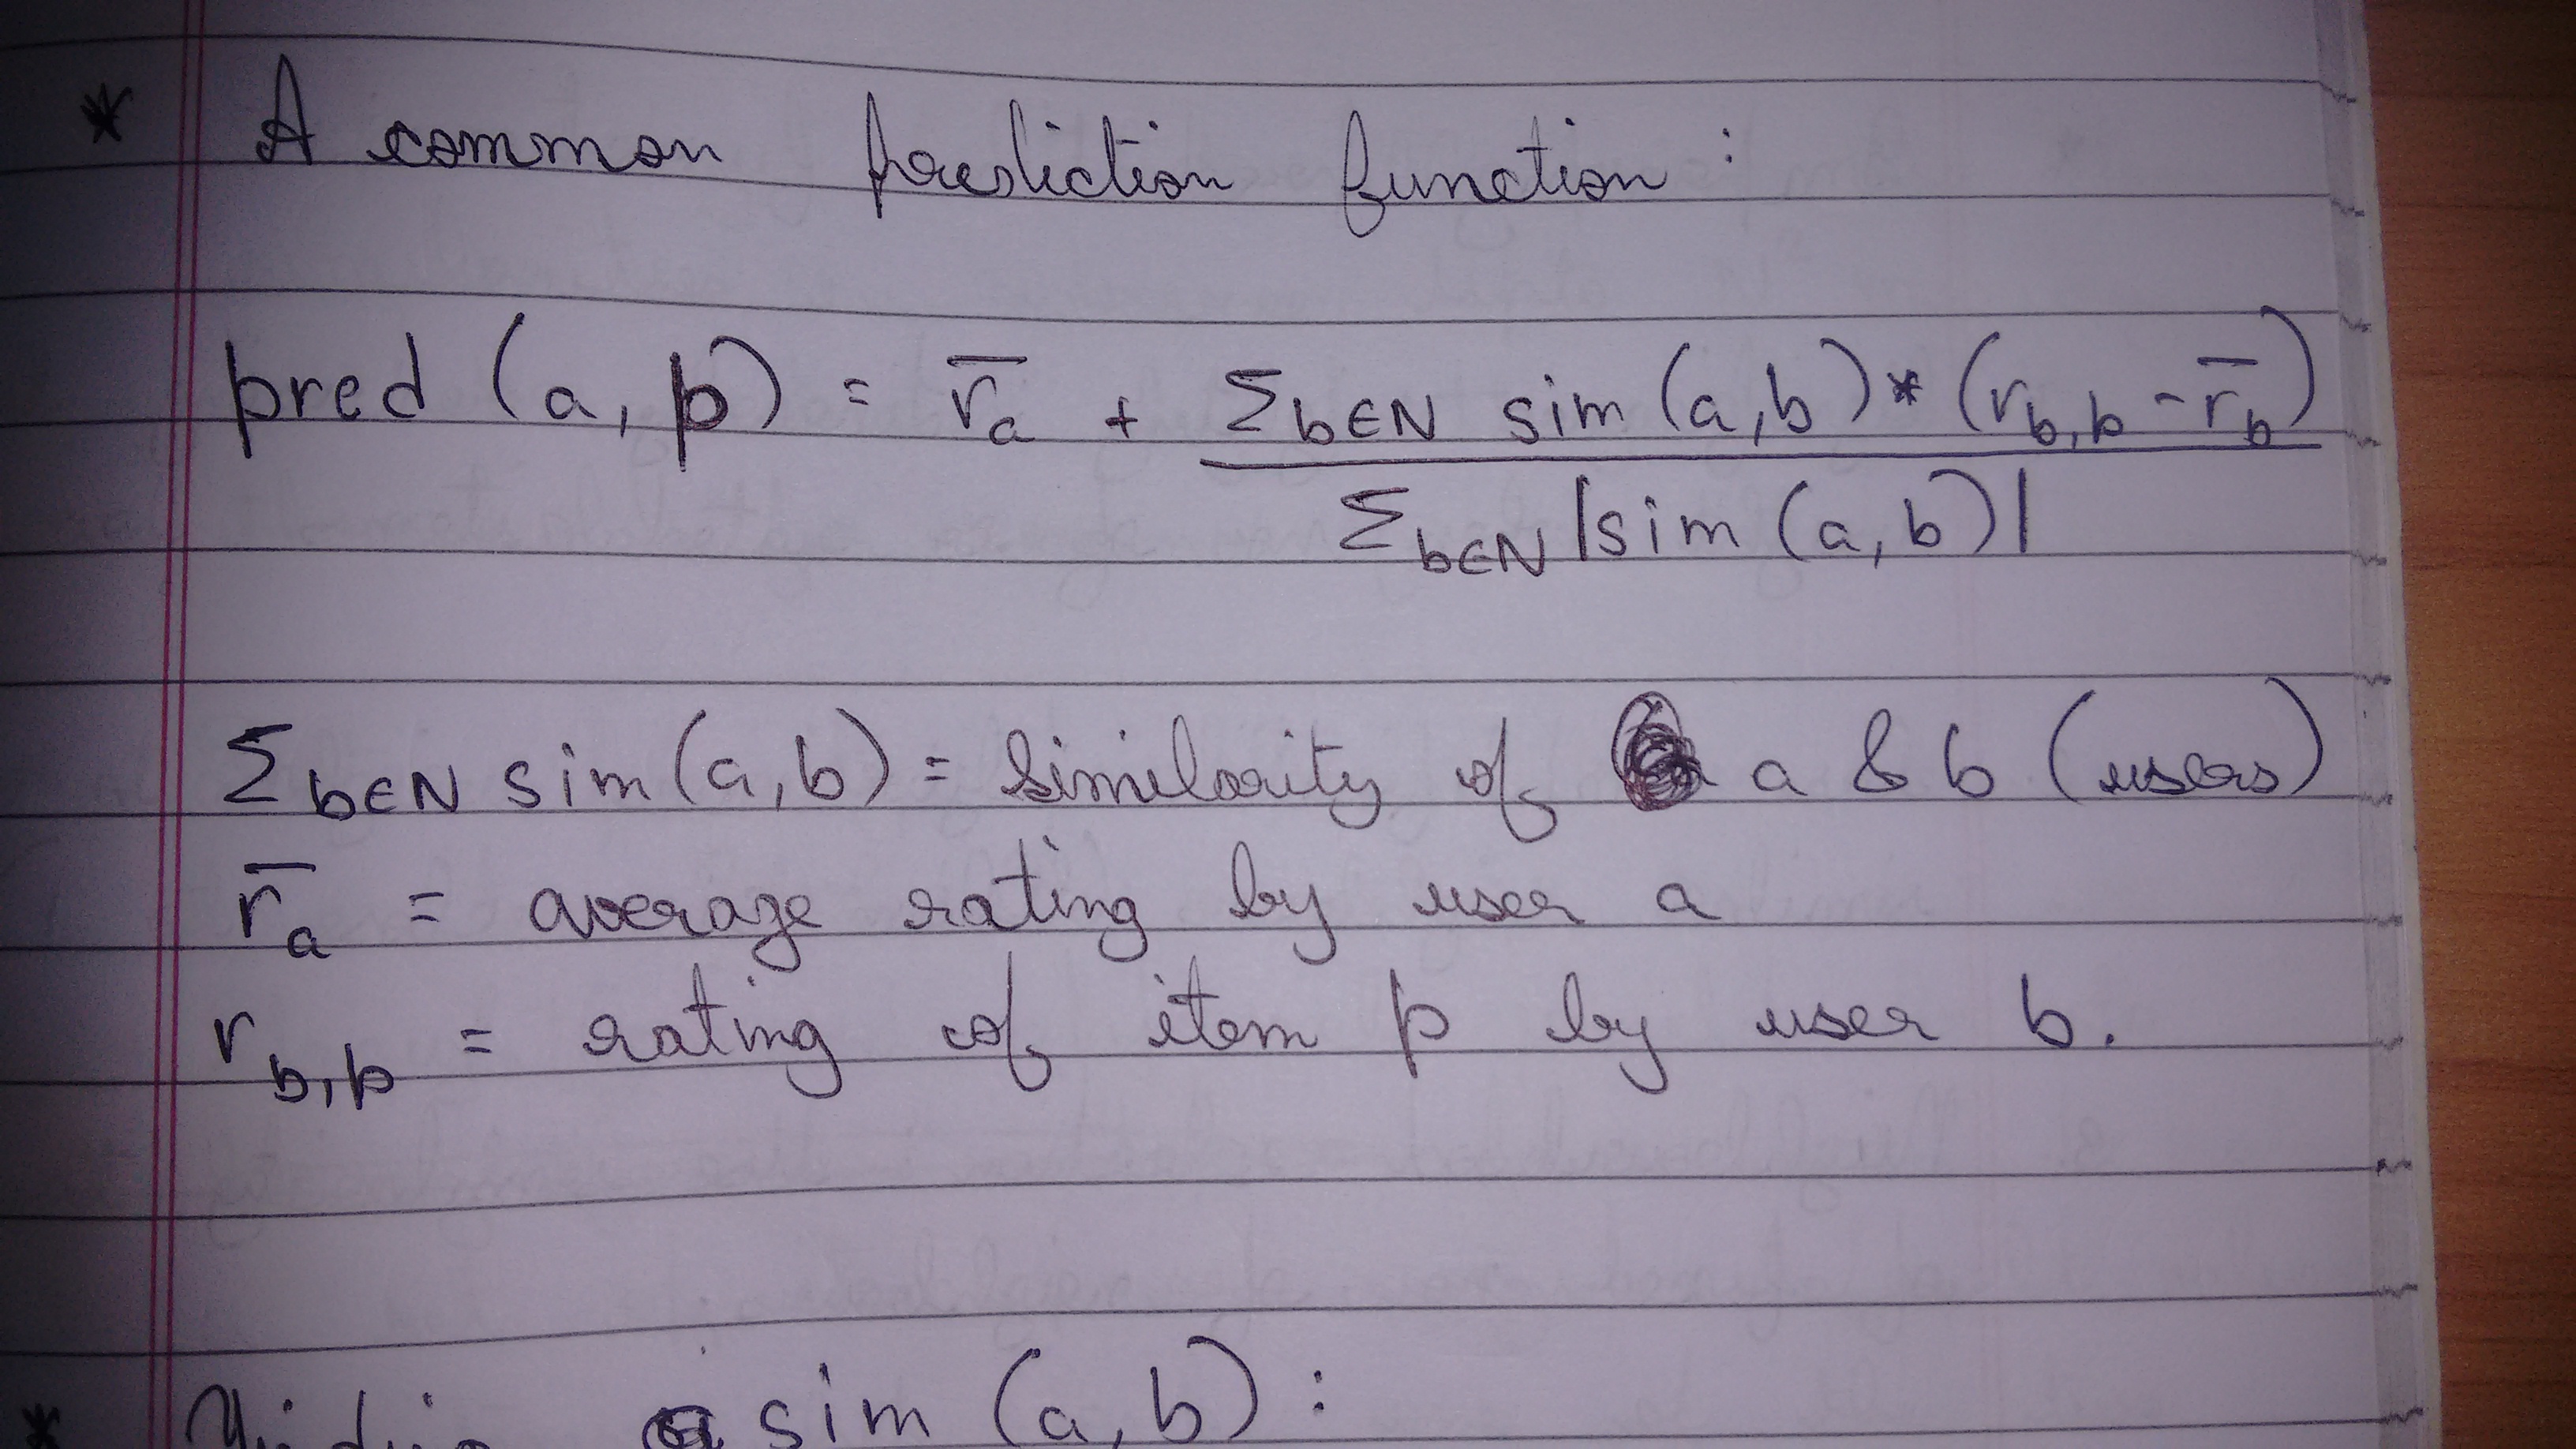 * A common prediction function:
pred (a, p) = r̅a + Σb∈N sim (a,b) * (rb,p - r̅b)
Σb∈N |sim (a, b)|
Σb∈N sim (a, b) = similarity of a & b (users)
r̅a = average rating by user a
rb,p = rating of item p by user b.
* sim (a, b) :